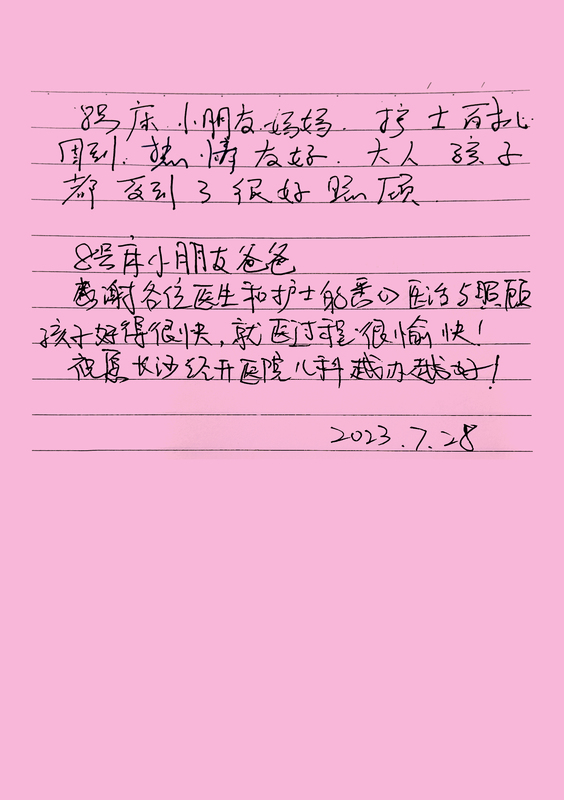 8号床小朋友妈妈. 护士
周到. 热情友好. 大人 孩子
都受到了很好照顾.
8号床小朋友爸爸
感谢各位医生和护士的悉心医治与照顾
孩子好得很快, 就医过程很愉快!
祝愿长沙经开医院儿科越办越好!
2023.7.28